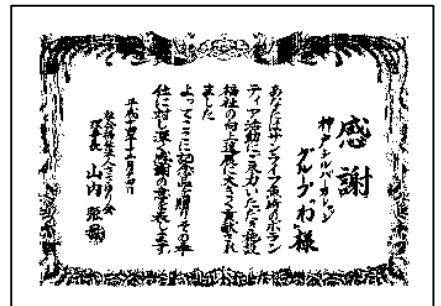 感謝
神戸シルバーカレッジ
グループ“わ”様
あなたはサンライフ魚崎のボラン
ティア活動にご尽力いただき施設
福祉の向上進展に大きく貢献され
ました
よってここに記念品を贈りその奉
仕に対し深く感謝の意を表します
平成十四年十二月
社会福祉法人さくらゆり会
理事長 山内